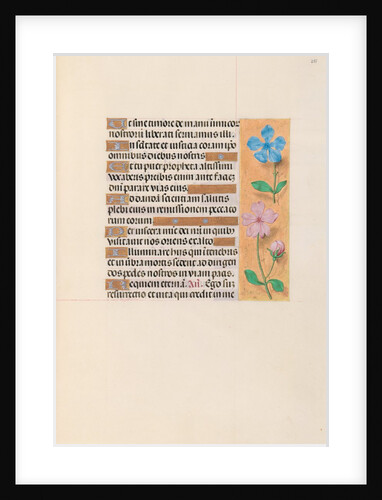 Ut sine timore de manu inimicor
nostrorū liberati seruiamus illi.
In scītate et iusticia coram ipō
omnibus diebus nostris
Et tu puer propheta altissimi
vocaberis preibis enim ante faciē
dn̄i parare vias eius
Ad dandā scientiam salutis
plebi eius in remissionem pecca to
rum eorum
Per viscera mīe dei nr̄i in quib9
visitauit nos oriens ex alto
Illuminare his qui ī tenebris
et in ūbra mortis sedent ad dirigen
dos pedes nostros in viam pacis.
Requiem eternā. An̄. Ego sū
resurrectio et vita qui credit in me